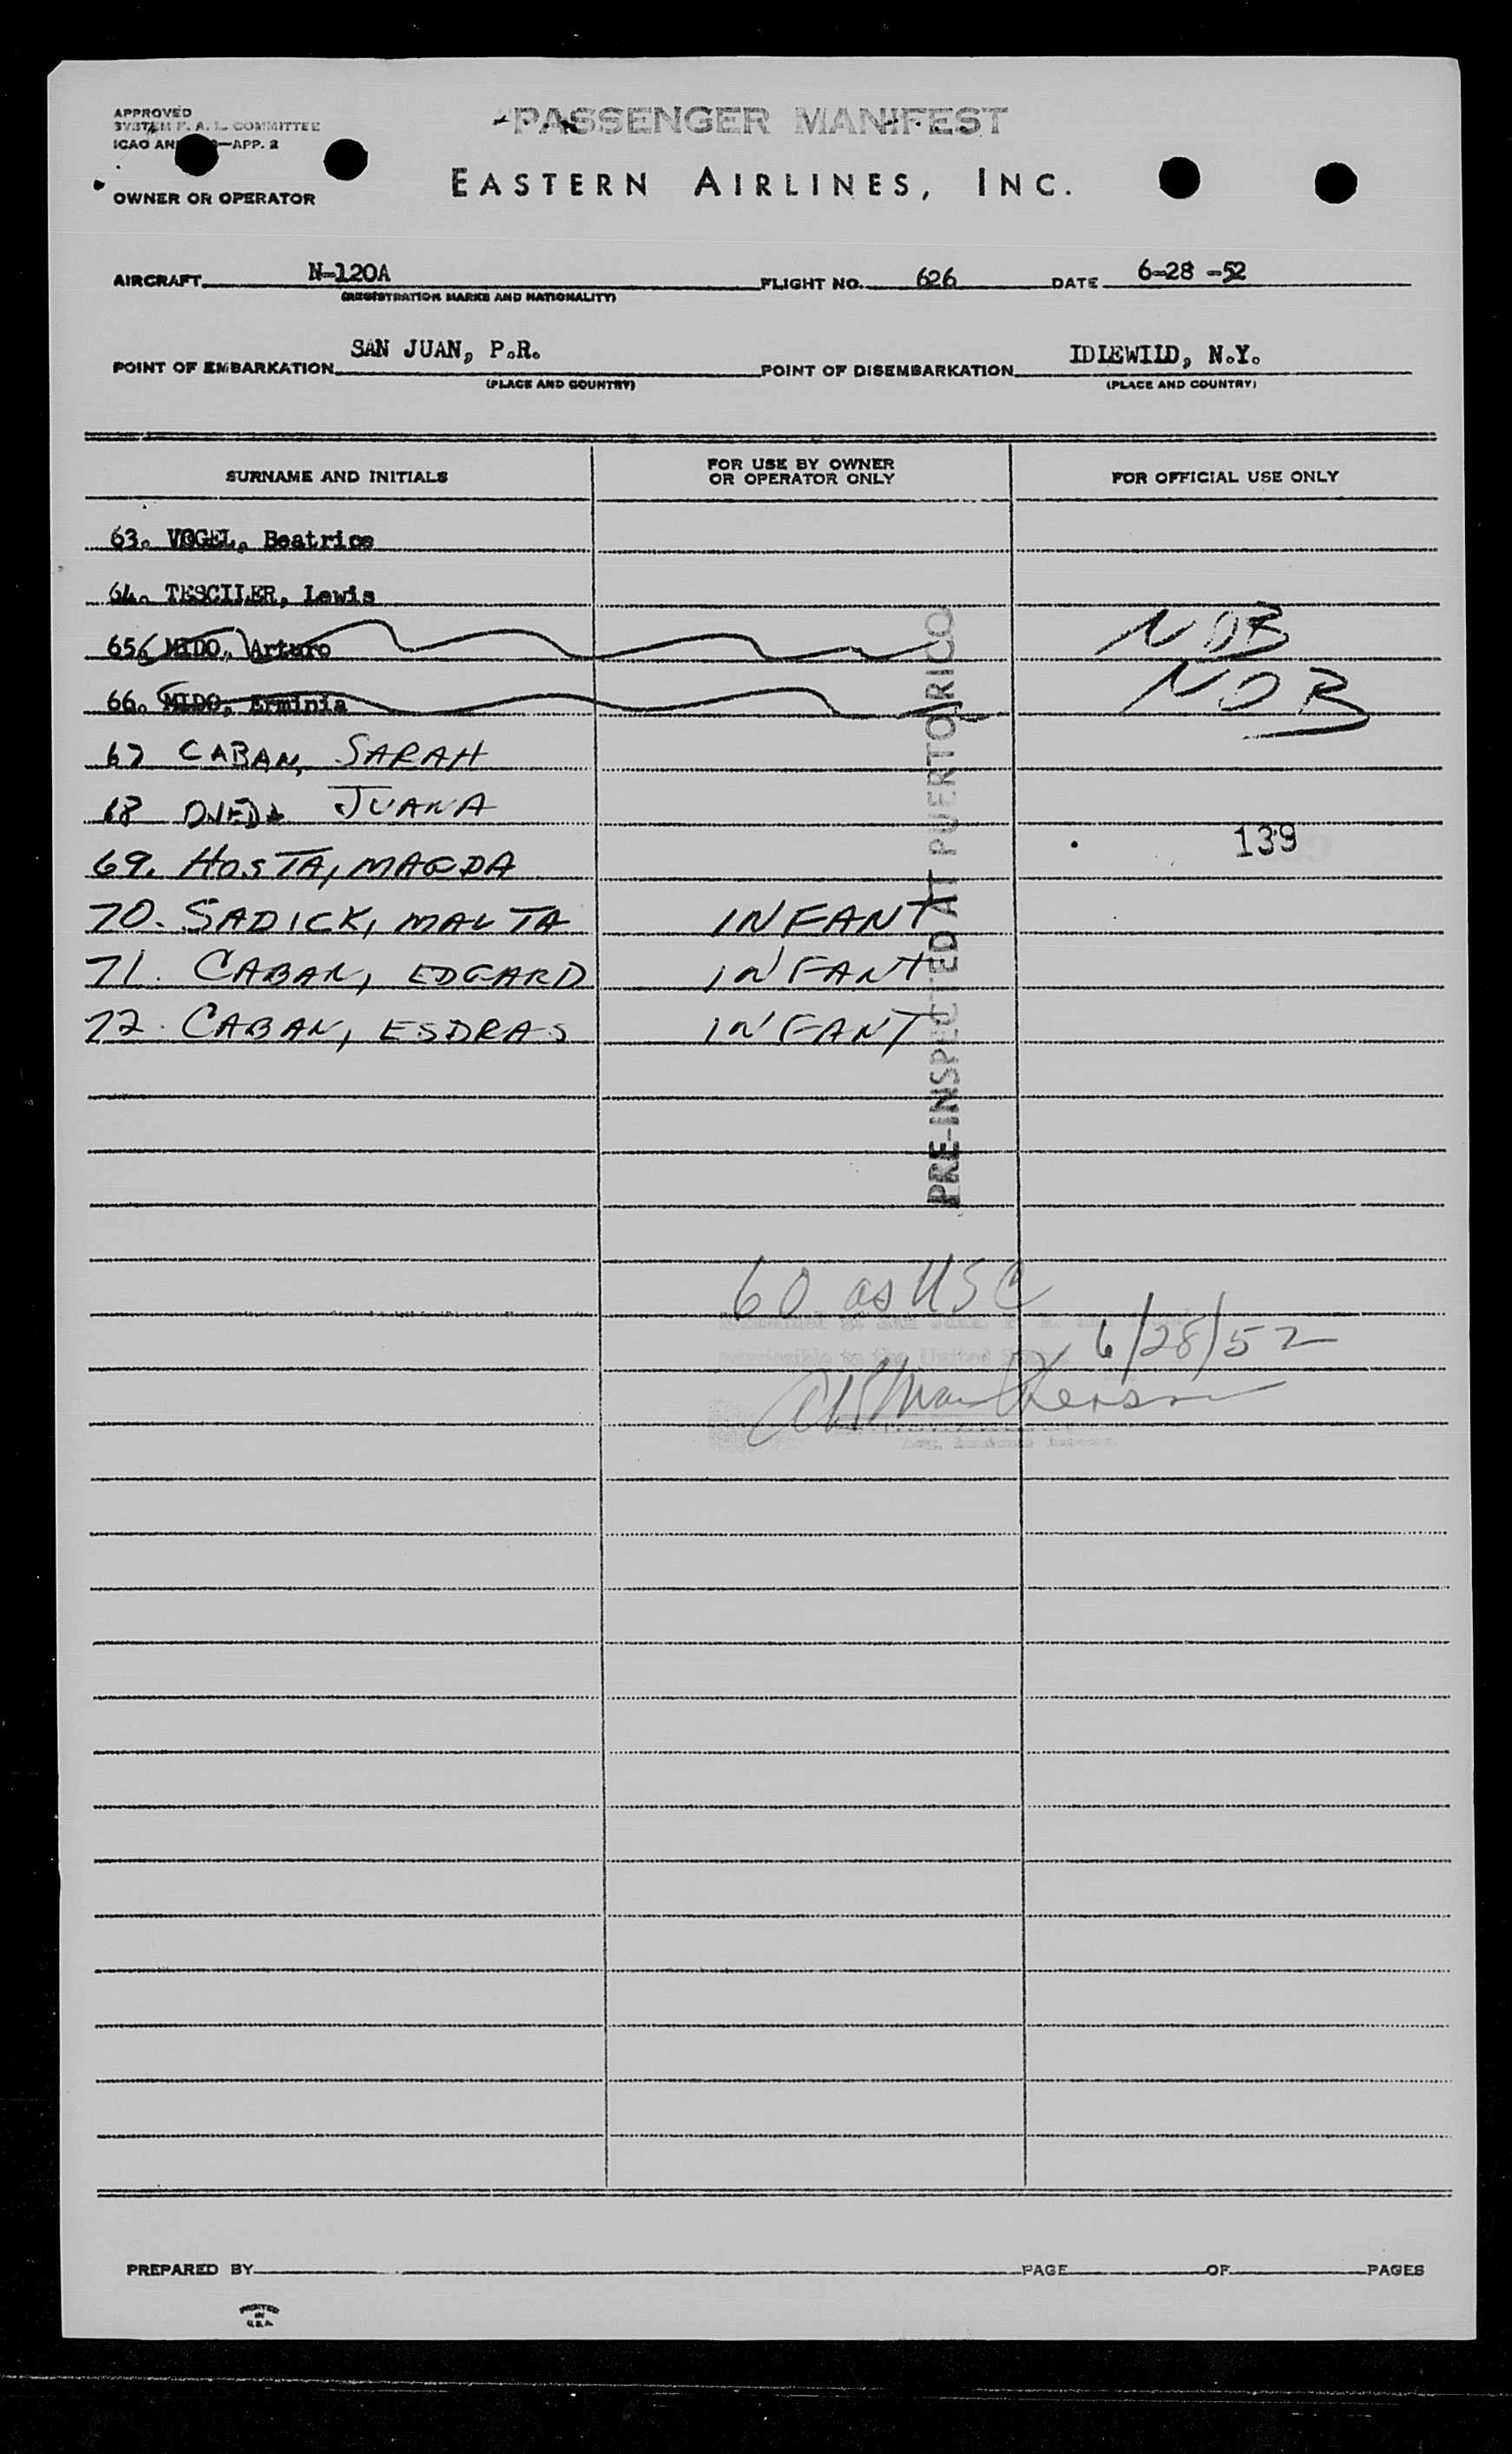 APPROVED
SYSTEM F. A. L. COMMITTEE
ICAO AN —APP. 2
PASSENGER MANIFEST
EASTERN AIRLINES, INC.
OWNER OR OPERATOR
AIRCRAFT N-120A FLIGHT NO. 626 DATE 6-28-52
(REGISTRATION MARKS AND NATIONALITY)
POINT OF EMBARKATION SAN JUAN, P.R. POINT OF DISEMBARKATION IDLEWILD, N.Y.
(PLACE AND COUNTRY) (PLACE AND COUNTRY)
SURNAME AND INITIALS FOR USE BY OWNER OR OPERATOR ONLY FOR OFFICIAL USE ONLY
63. VOGEL, Beatrice
64. TESCILER, Lewis
65. MIDO, Arturo NOB
66. MIDO, Erminia NOB
67 CABAN, SARAH
68 OJEDA JUANA
139
69. HOSTA, MAGDA
70. SADICK, MALTA INFANT
71. CABAN, EDGARD INFANT
72. CABAN, ESDRAS INFANT
PRE-INSPECTED AT PUERTO RICO
60 as USC
6/28/52
PREPARED BY PAGE OF PAGES
PRINTED
IN
U.S.A.